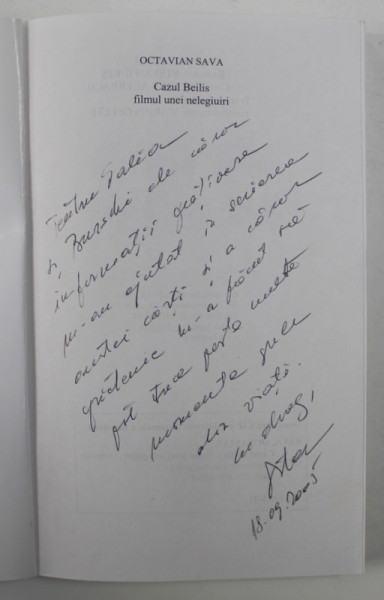 OCTAVIAN SAVA
Cazul Beilis
filmul unei nelegiuiri
Pentru Talia
și Burschi de căror
informații prețioase
m-au ajutat în scrierea
acestei cărți și a căror
prietenie m-a făcut să
pot trece peste multe
momente grele
din viață.
cu drag,
18.09.2005